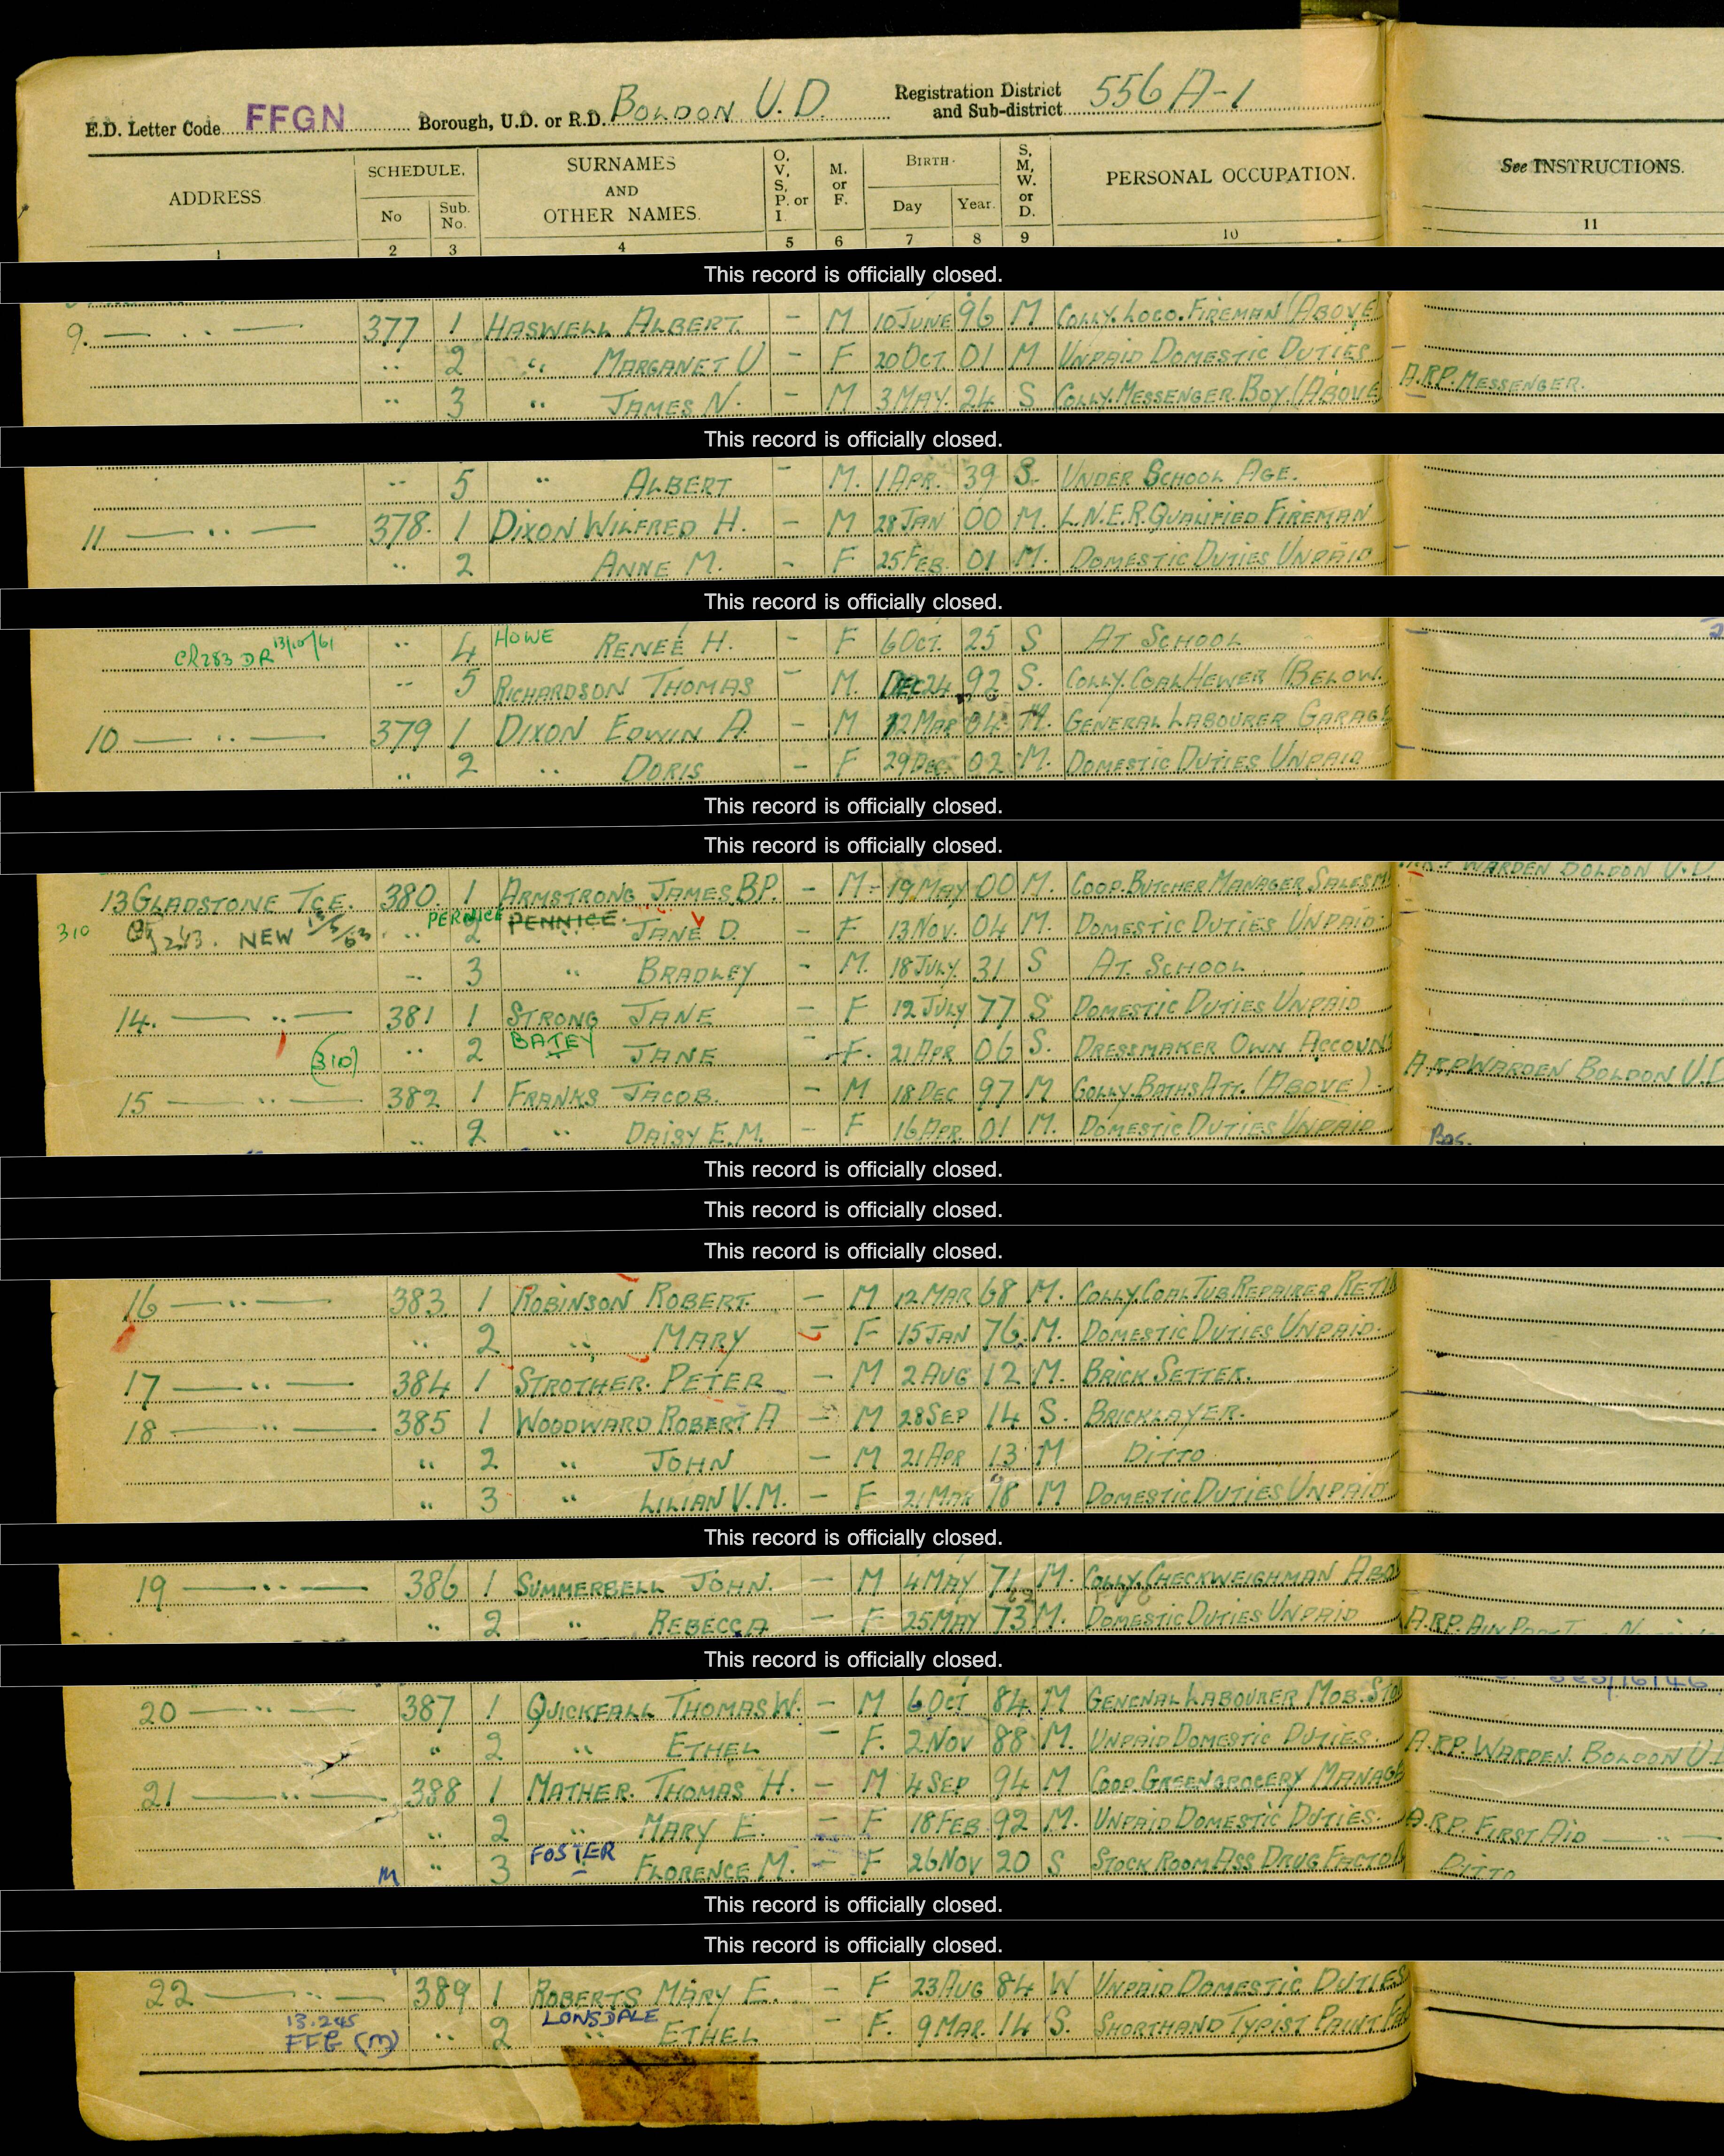 E.D. Letter Code FFGN Borough, U.D. or R.D. BOLDON U.D. Registration District and Sub-district 556 A-1
ADDRESS SCHEDULE. SURNAMES AND OTHER NAMES. O, V, S, P. or I. M. or F. BIRTH. S, M, W. or D. PERSONAL OCCUPATION. See INSTRUCTIONS.
No Sub. No. Day Year.
1 2 3 4 5 6 7 8 9 10 11
This record is officially closed.
9. — .. — 377 1 HASWELL ALBERT - M 10 JUNE 96 M COLLY. LOCO. FIREMAN (ABOVE
.. 2 " MARGANET U - F 20 OCT. 01 M UNPAID DOMESTIC DUTIES
.. 3 " JAMES N. - M 3 MAY. 24 S COLLY. MESSENGER BOY (ABOVE A.R.P. MESSENGER.
This record is officially closed.
.. 5 " ALBERT - M. 1 APR. 39 S. UNDER SCHOOL AGE.
11 — .. — 378. 1 DIXON WILFRED H. - M 28 JAN 00 M. L.N.E.R. QUALIFIED FIREMAN
.. 2 ANNE M. - F 25 FEB. 01 M. DOMESTIC DUTIES UNPAID
This record is officially closed.
CR283 DR 13/10/61 .. 4 HOWE RENEÉ H. - F 6 OCT. 25 S AT SCHOOL
.. 5 RICHARDSON THOMAS - M. DEC 24 92 S. COLLY. COAL HEWER (BELOW.
10 — .. — 379 1 DIXON EDWIN A. - M 12 MAR 04 M. GENERAL LABOURER GARAGE
.. 2 .. DORIS - F 29 DEC. 02 M. DOMESTIC DUTIES UNPAID
This record is officially closed.
This record is officially closed.
WARDEN BOLDON U.D.
13 GLADSTONE TCE. 380. 1 ARMSTRONG JAMES B.P. - M - 19 MAY 00 M. COOP. BUTCHER MANAGER SALESM
310 NEW .. PERNICE 2 PENNICE. JANE D. - F 13 NOV. 04 M. DOMESTIC DUTIES UNPAID
.. 3 " BRADLEY - M. 18 JULY 31 S AT SCHOOL
14. — .. — 381 1 STRONG JANE - F 12 JULY 77 S DOMESTIC DUTIES UNPAID
(310) .. 2 BATEY JANE - F. 21 APR 06 S. DRESSMAKER OWN ACCOUNT A.R.P. WARDEN BOLDON U.D
15 — .. — 382 1 FRANKS JACOB. - M 18 DEC 97 M COLLY. BATHS ATT. (ABOVE)
.. 2 .. DAISY E.M. - F 16 APR. 01 M. DOMESTIC DUTIES UNPAID
This record is officially closed.
This record is officially closed.
This record is officially closed.
16 — .. — 383 1 ROBINSON ROBERT. - M 12 MAR 68 M. COLLY COAL TUB REPAIRER RETD
.. 2 " MARY - F 15 JAN 76 M. DOMESTIC DUTIES UNPAID.
17 — .. — 384 1 STROTHER. PETER - M 2 AUG 12 M. BRICK SETTER.
18 — .. — 385 1 WOODWARD ROBERT A - M 28 SEP 14 S. BRICKLAYER.
" 2 " JOHN - M 21 APR 13 M DITTO
" 3 " LILIAN V.M. - F 21 MAR 18 M DOMESTIC DUTIES UNPAID
This record is officially closed.
19 — .. — 386 1 SUMMERBELL JOHN. - M 4 MAY 71 M. COLLY. CHECKWEIGHMAN ABO
" 2 " REBECCA - F 25 MAY 73 M. DOMESTIC DUTIES UNPAID A.R.P.
This record is officially closed.
20 — .. — 387 1 QUICKFALL THOMAS W. - M 6 OCT 84 M GENENAL LABOURER MOB. STO
" 2 " ETHEL - F. 2 NOV 88 M. UNPAID DOMESTIC DUTIES. A.R.P. WARDEN. BOLDON U.D
21 — .. — 388 1 MATHER. THOMAS H. - M 4 SEP 94 M COOP. GREENGROCERY MANAGE
" 2 " MARY E. - F 18 FEB 92 M. UNPAID DOMESTIC DUTIES. A.R.P. FIRST AID — .. —
M " 3 FOSTER FLORENCE M. - F 26 NOV 20 S STOCK ROOM ASS DRUG FACTO DITTO
This record is officially closed.
This record is officially closed.
22 — .. — 389 1 ROBERTS MARY E. - F 23 AUG 84 W UNPAID DOMESTIC DUTIES
13.245 FFB (M) .. 2 LONSDALE " ETHEL - F. 9 MAR. 14 S. SHORTHAND TYPIST PAINT FA